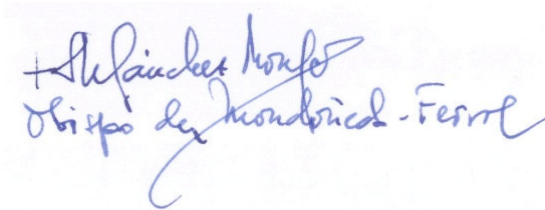 + M Sánchez Monge
Obispo de Mondoñedo-Ferrol